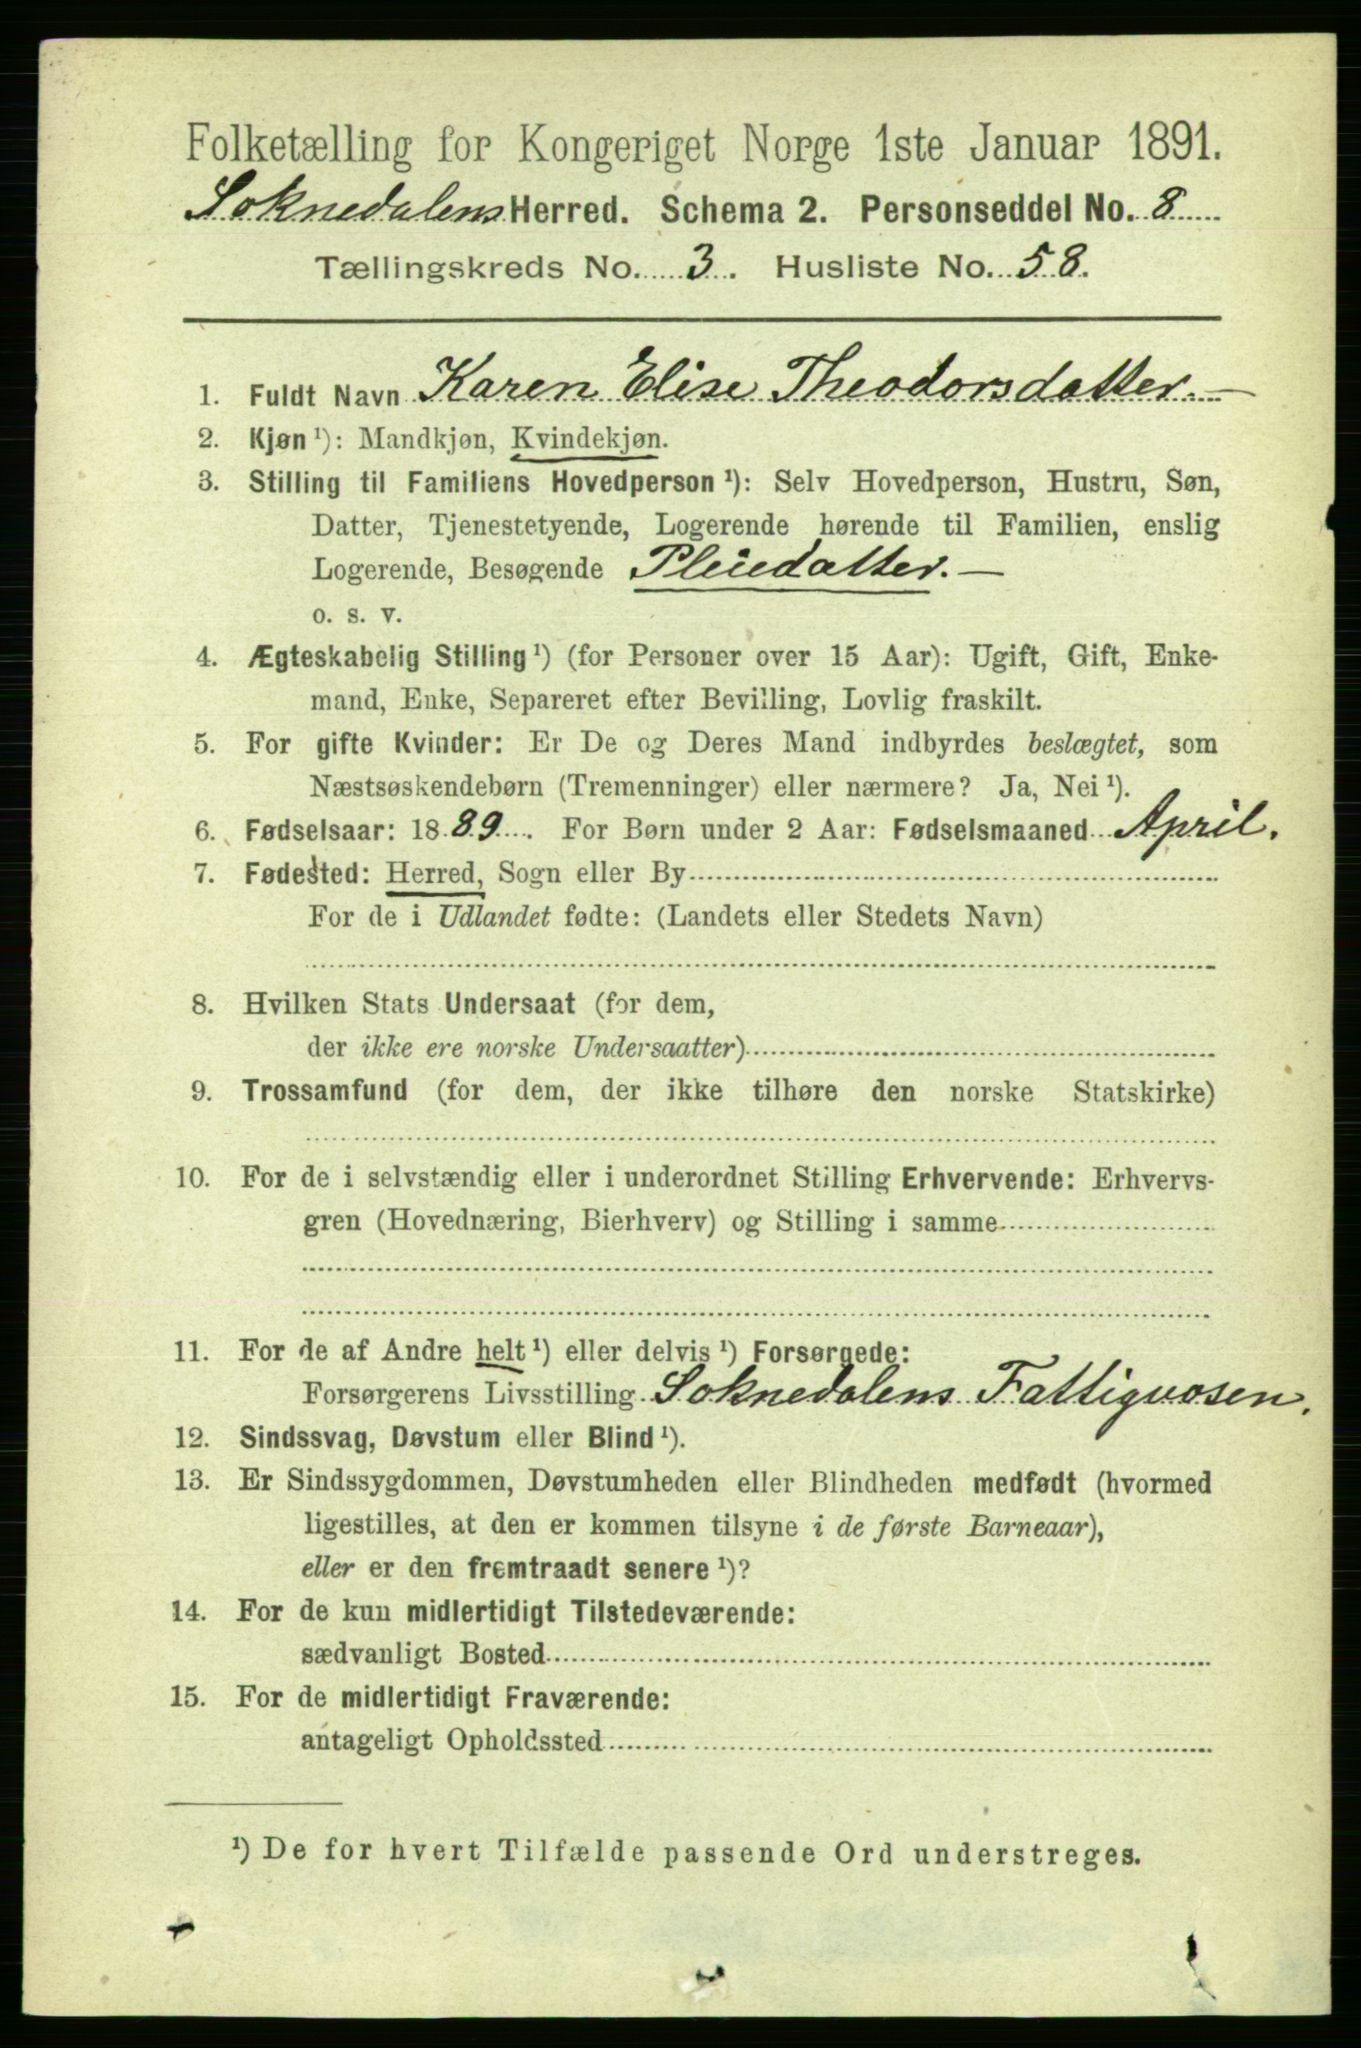 Folketælling for Kongeriget Norge 1ste Januar 1891.
Soknedalens Herred. Schema 2. Personseddel No. 8
Tællingskreds No. 3. Husliste No. 58.
1. Fuldt Navn Karen Elise Theodorsdatter.—
2. Kjøn ¹): Mandkjøn, Kvindekjøn.
3. Stilling til Familiens Hovedperson ¹): Selv Hovedperson, Hustru, Søn,
Datter, Tjenestetyende, Logerende hørende til Familien, enslig
Logerende, Besøgende Pleiedatter.—
o. s. v.
4. Ægteskabelig Stilling ¹) (for Personer over 15 Aar): Ugift, Gift, Enke-
mand, Enke, Separeret efter Bevilling, Lovlig fraskilt.
5. For gifte Kvinder: Er De og Deres Mand indbyrdes beslægtet, som
Næstsøskendebørn (Tremenninger) eller nærmere? Ja, Nei ¹).
6. Fødselsaar: 1889. For Børn under 2 Aar: Fødselsmaaned April.
7. Fødested: Herred, Sogn eller By
For de i Udlandet fødte: (Landets eller Stedets Navn)
8. Hvilken Stats Undersaat (for dem,
der ikke ere norske Undersaatter)
9. Trossamfund (for dem, der ikke tilhøre den norske Statskirke)
10. For de i selvstændig eller i underordnet Stilling Erhvervende: Erhvervs-
gren (Hovednæring, Bierhverv) og Stilling i samme
11. For de af Andre helt ¹) eller delvis ¹) Forsørgede:
Forsørgerens Livsstilling Soknedalens Fattigvæsen.
12. Sindssvag, Døvstum eller Blind ¹).
13. Er Sindssygdommen, Døvstumheden eller Blindheden medfødt (hvormed
ligestilles, at den er kommen tilsyne i de første Barneaar),
eller er den fremtraadt senere ¹)?
14. For de kun midlertidigt Tilstedeværende:
sædvanligt Bosted
15. For de midlertidigt Fraværende:
antageligt Opholdssted
¹) De for hvert Tilfælde passende Ord understreges.